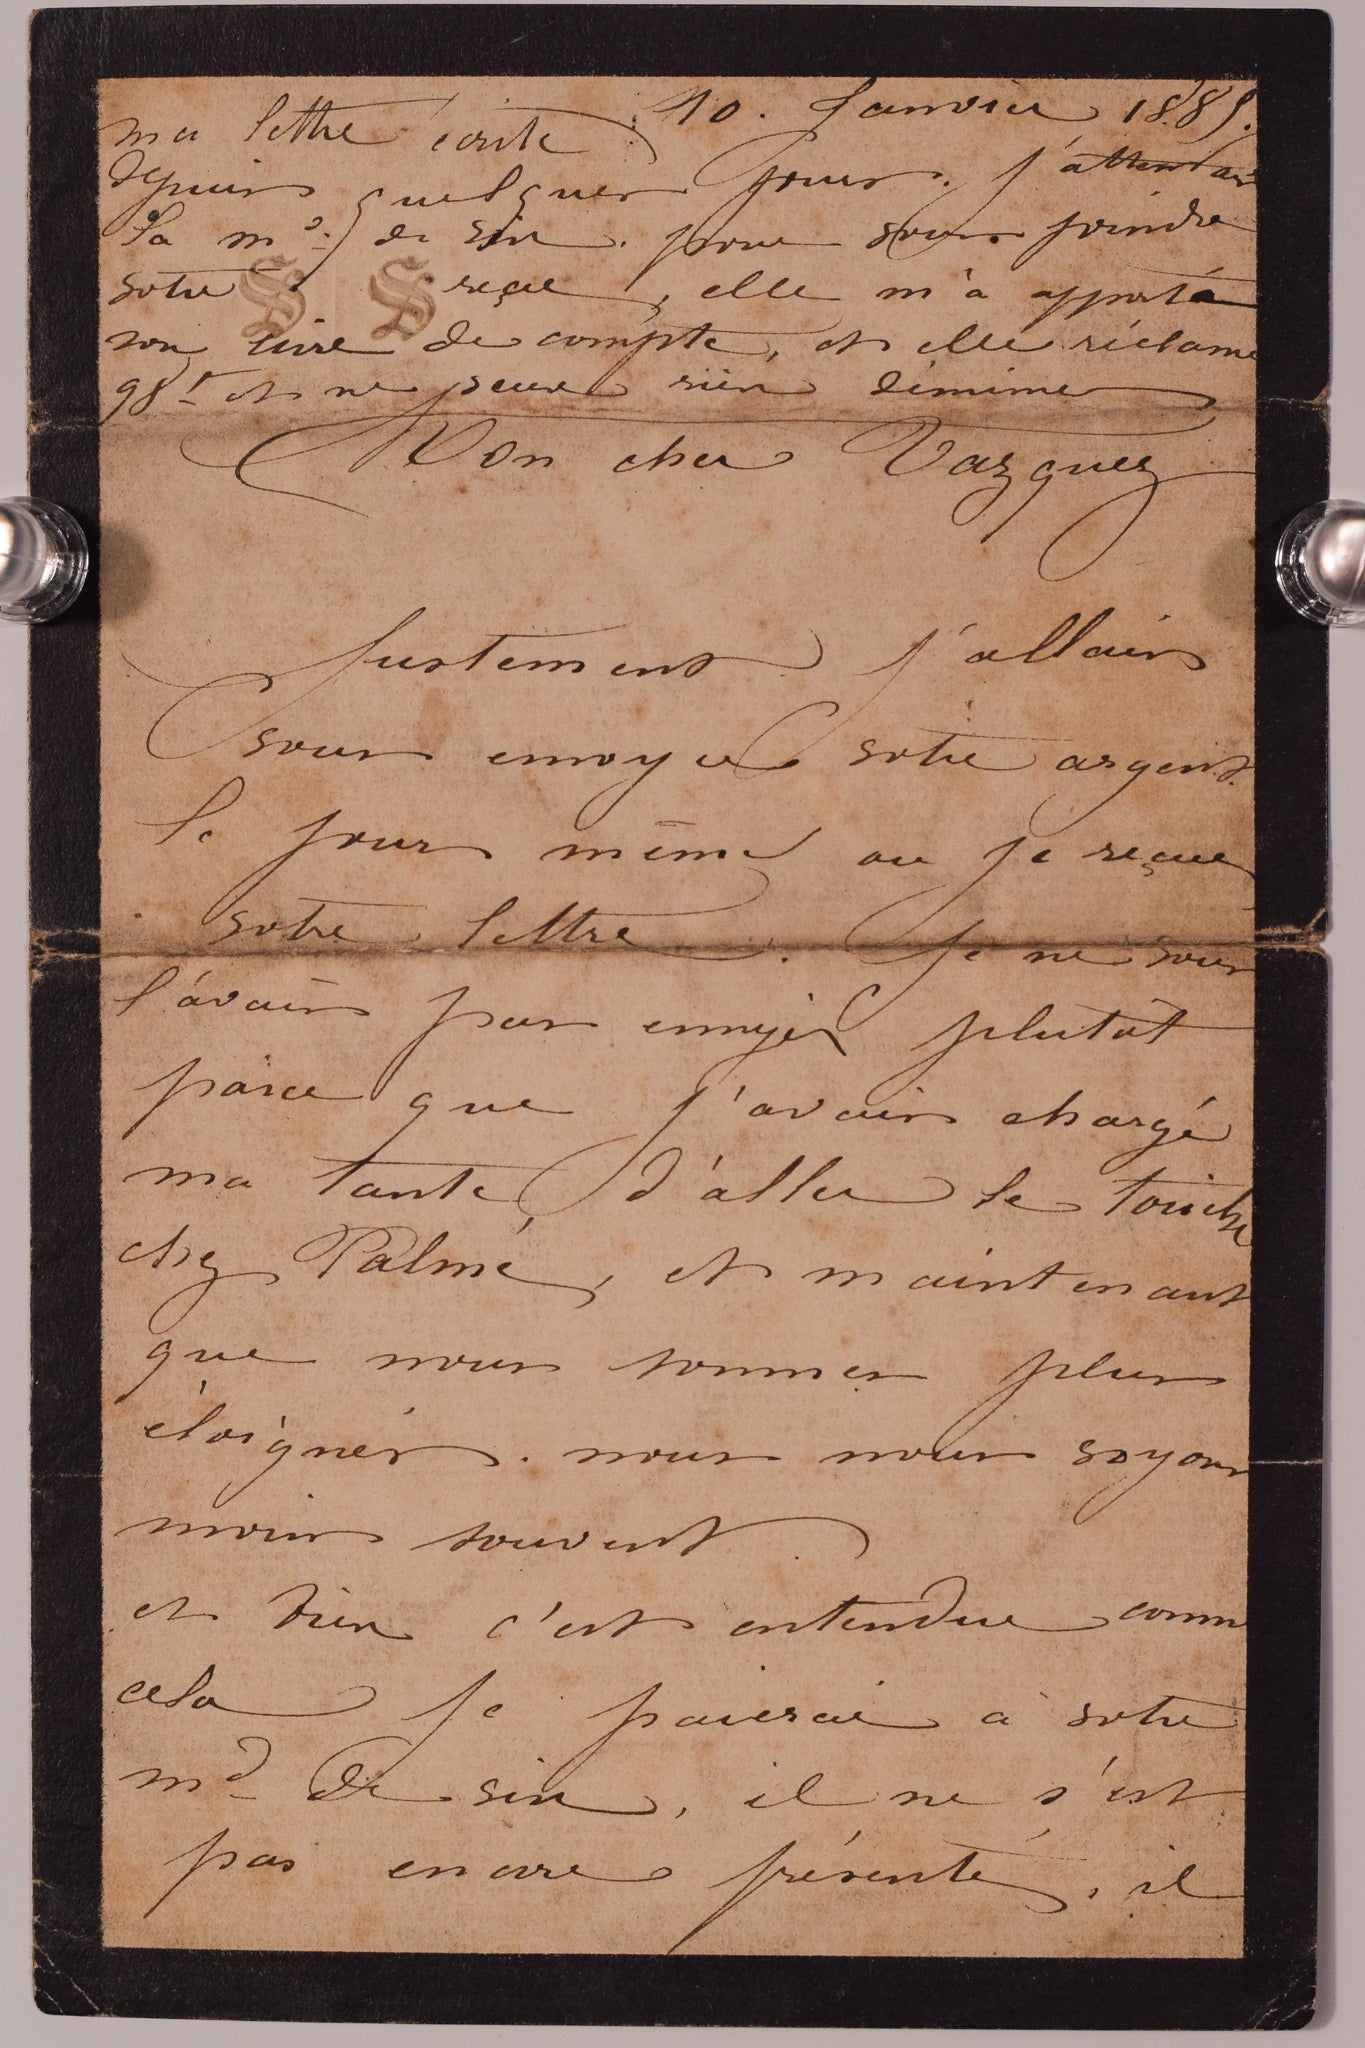 10. Janvier 1885.
ma lettre écrite
depuis quelques jours. j'attendais
la md. de vin. pour vous joindre
votre reçue, elle m'a apporté
son livre de compte, et elle réclame
98f et ne peux rien diminuer
Mon cher Vazquez
Justement j'allais
vous envoyer votre argent.
le jour même ou je reçue
votre lettre. Je ne vous
l'avais pas envoyé plutot
parce que j'avais chargé
ma tante, d'aller le toucher
chez Palmé, et maintenant
que nous sommes plus
éloignés. nous nous voyons
moins souvent
et bien c'est entendue comme
cela je paierai à votre
md de vin, il ne s'est
pas encore présenté, il
S S